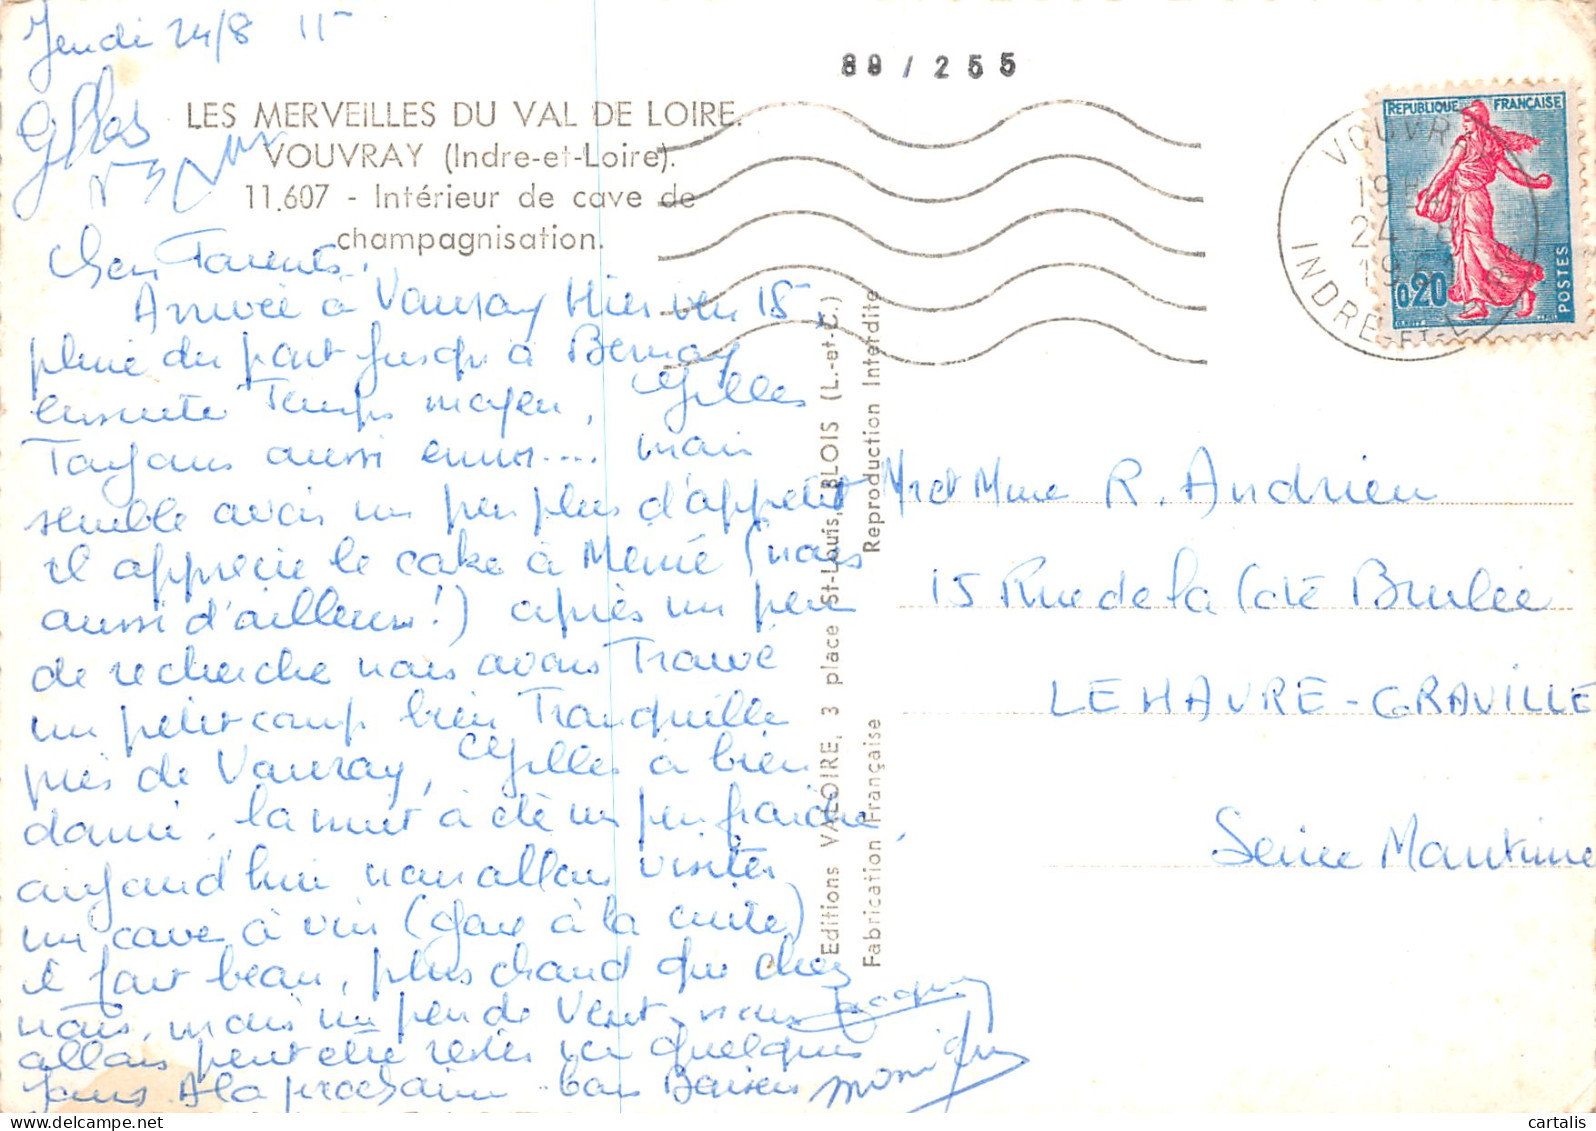 Jeudi 24/8 11-
Gilles
89/255
LES MERVEILLES DU VAL DE LOIRE.
VOUVRAY (Indre-et-Loire).
11.607 - Intérieur de cave de
champagnisation.
Chers Parents.
Arrivée à Vouvray Hier vers 18-
pluie du part jusqu'à Bernay
ensuite Temps moyen, Gilles
Toujours aussi ... mais
semble avoir un peu plus d'appetit
il apprecie le cake à Mémé (nous
aussi d'ailleurs!) après un peu
de recherche nous avons Trouvé
un petit coup bien Tranquille
près de Vouvray, Gilles à bien
dormi, la nuit à été un peu fraiche,
aujourd'hui nous allons visiter
un cave à vin (gare à la cuite)
il fait beau, plus chaud que chez
nous, mais un peu de Vent. nous
allons peut être rester ici quelques
jours A la prochaine bons Baisers
Jacques
monique
Editions VALOIRE, 3 place St-Louis, BLOIS (L.-et-C.)
Fabrication Française
Reproduction Interdite
REPUBLIQUE FRANÇAISE
0,20
POSTES
VOUVR
24-8
INDRE-ET-LOIRE
Mr et Mme R. Andrieu
15 Rue de la Cote Brulée
LE HAVRE-GRAVILLE
Seine Maritime
cartalis